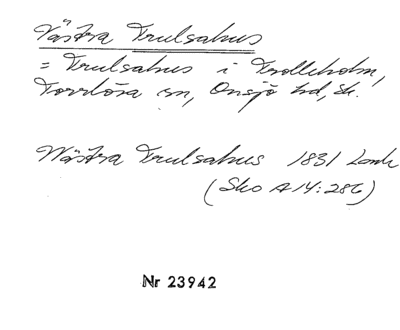 Västra Trulsahus
= Trulsahus i Trolleholm,
Torrlösa sn, Onsjö hd, Sk.
Wästra Trulsahus 1831 Lantm
(Sko A 14:286)
Nr 23942